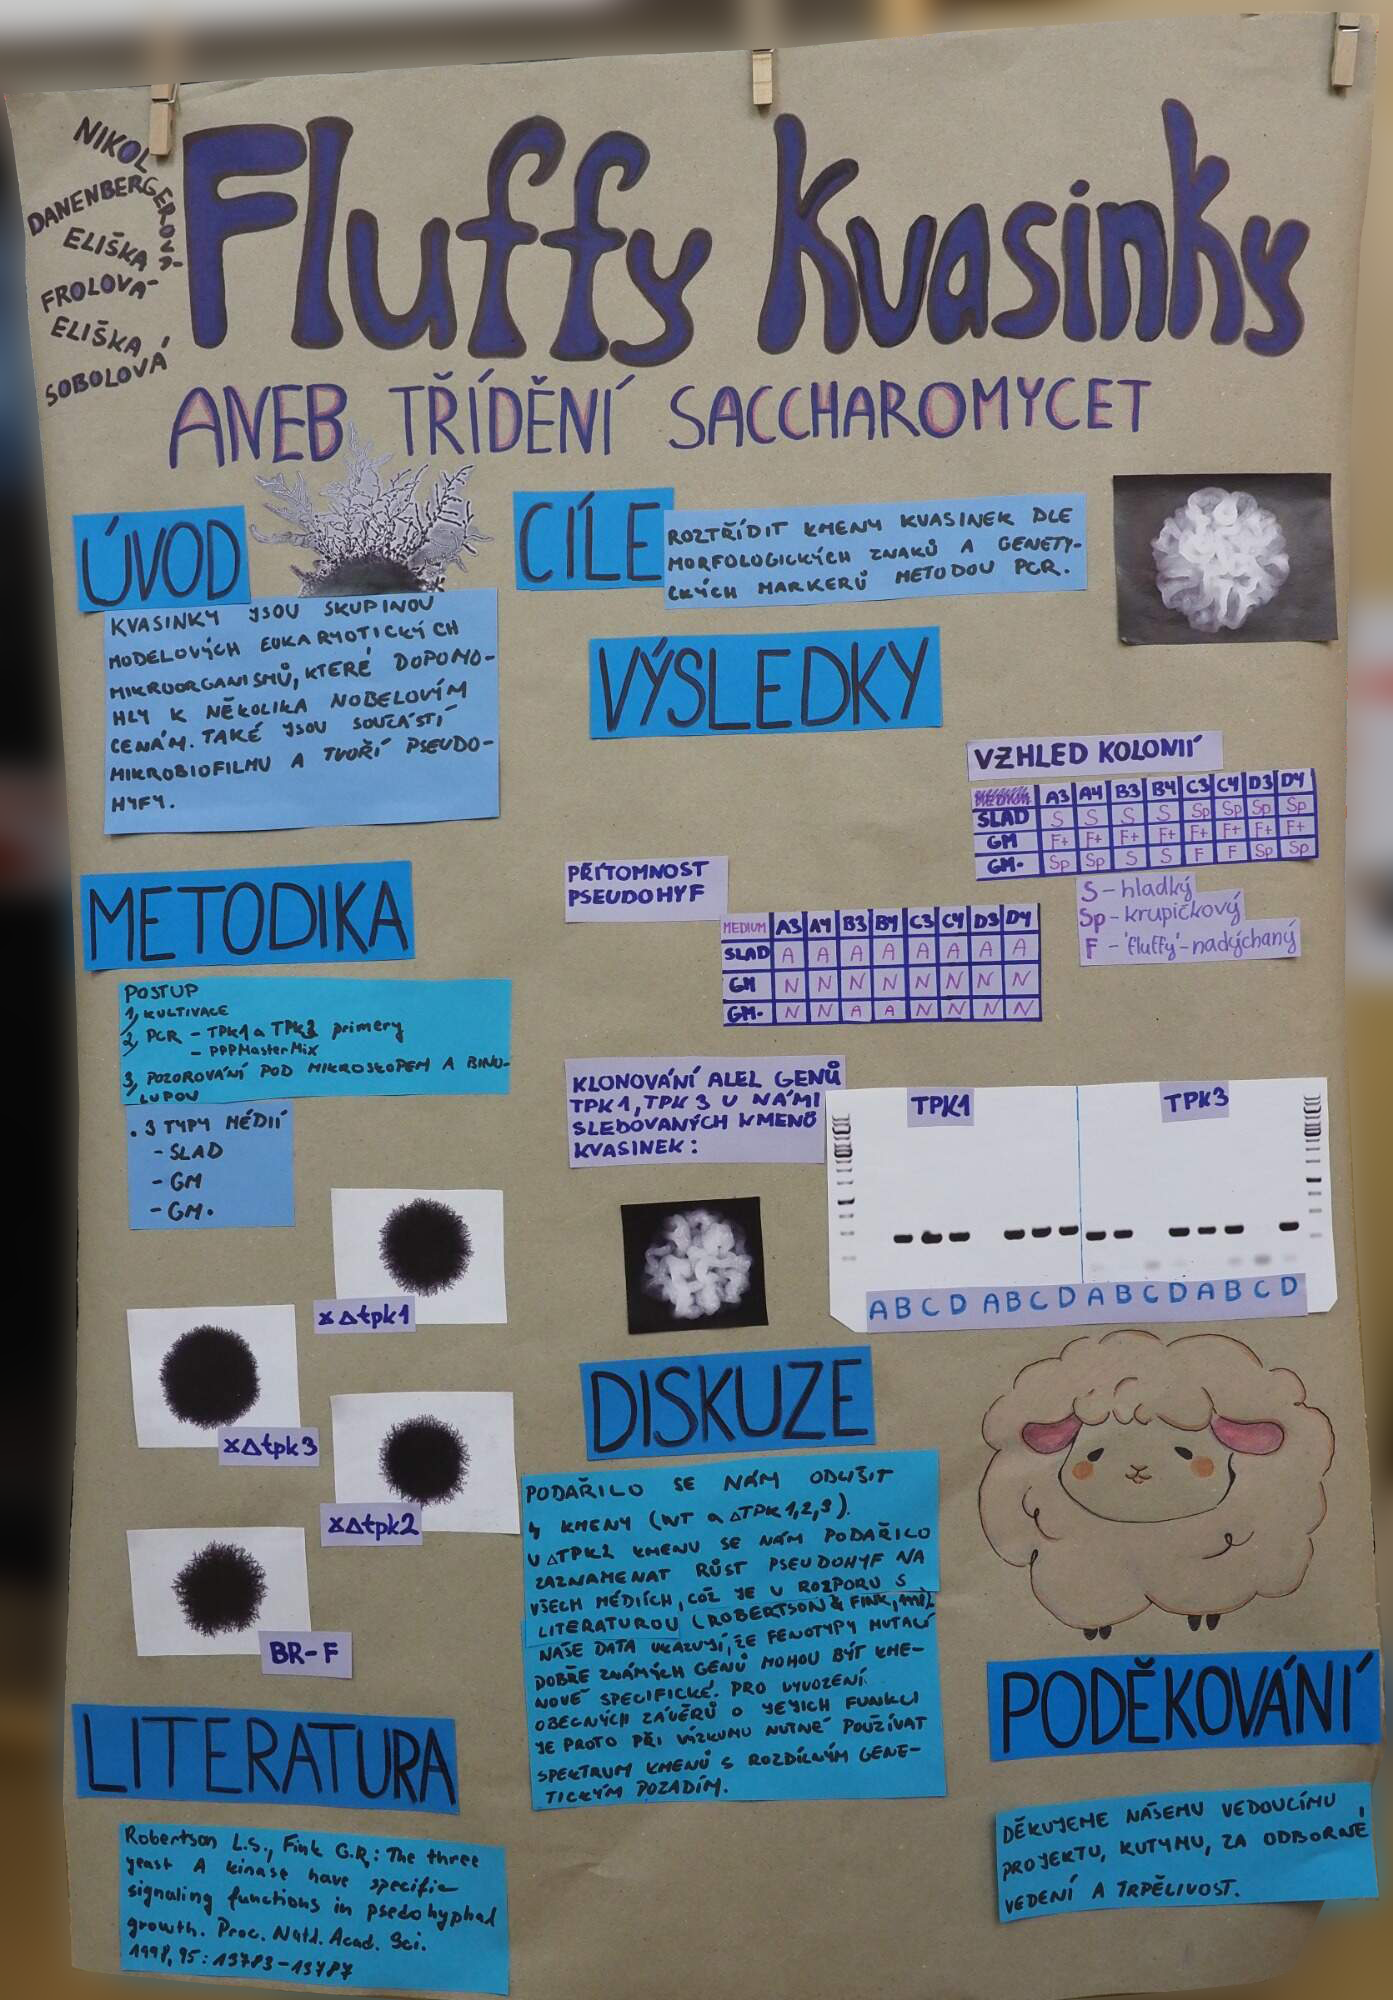 NIKOL
DANENBERGEROVÁ
ELIŠKA
FROLOVA-
ELIŠKA
SOBOLOVÁ
Fluffy Kvasinky
ANEB TŘÍDĚNÍ SACCHAROMYCET
ÚVOD
KVASINKY JSOU SKUPINOU
MODELOVÝCH EUKARYOTICKÝCH
MIKROORGANISMŮ, KTERÉ DOPOMO-
HLY K NĚKOLIKA NOBELOVÍM
CENÁM. TAKÉ JSOU SOUČÁSTÍ
MIKROBIOFILMU A TVOŘÍ PSEUDO-
HYFY.
CÍLE
ROZTŘÍDIT KMENY KVASINEK DLE
MORFOLOGICKÝCH ZNAKŮ A GENETY-
CKÝCH MARKERŮ METODOU PCR.
METODIKA
POSTUP
1, KULTIVACE
2, PCR - TPK1 a TPK3 priméry
- PPPMasterMix
3, POZOROVÁNÍ POD MIKROSKOPEM A BINO-
LUPOU
. 3 TYPY MÉDIÍ
- SLAD
- GM
- GM.
x∆tpk1
x∆tpk3
x∆tpk2
BR-F
LITERATURA
Robertson L.S., Fink G.R.: The three
yeast A kinase have specific
signaling functions in psedohyphal
growth. Proc. Natl. Acad. Sci.
1998, 95: 13783-13787
VÝSLEDKY
VZHLED KOLONIÍ
MEDIUM A3 A4 B3 B4 C3 C4 D3 D4
SLAD S S S S Sp Sp Sp Sp
GM F+ F+ F+ F+ F+ F+ F+ F+
GM. Sp Sp S S F F Sp Sp
S - hladký
Sp - krupičkový
F - 'fluffy' - nadýchaný
PŘÍTOMNOST
PSEUDOHYF
MEDIUM A3 A4 B3 B4 C3 C4 D3 D4
SLAD A A A A A A A A
GM N N N N N N N N
GM. N N A A N N N N
KLONOVÁNÍ ALEL GENŮ
TPK1, TPK 3 U NÁMI
SLEDOVANÝCH KMENŮ
KVASINEK:
TPK1 TPK3
A B C D A B C D A B C D A B C D
DISKUZE
PODAŘILO SE NÁM ODLIŠIT
4 KMENY (WT a ∆TPK 1,2,3).
U ∆TPK2 KMENU SE NÁM PODAŘILO
ZAZNAMENAT RŮST PSEUDOHYF NA
VŠECH MÉDIÍCH, COŽ JE V ROZPORU S
LITERATUROU (ROBERTSON & FINK, 1998).
NAŠE DATA UKAZUJÍ, ŽE FENOTYPY MUTACÍ
DOBŘE ZNÁMÝCH GENŮ MOHOU BÝT KME-
NOVĚ SPECIFICKÉ. PRO VYVOZENÍ
OBECNÝCH ZÁVĚRŮ O JEJICH FUNKCI
JE PROTO PŘI VÍZKUMU NUTNÉ POUŽÍVAT
SPEKTRUM KMENŮ S ROZDÍLNÝM GENE-
TICKÝM POZADÍM.
PODĚKOVÁNÍ
DĚKUJEME NAŠEMU VEDOUCÍMU
PROJEKTU, KUTYMU, ZA ODBORNÉ
VEDENÍ A TRPĚLIVOST.